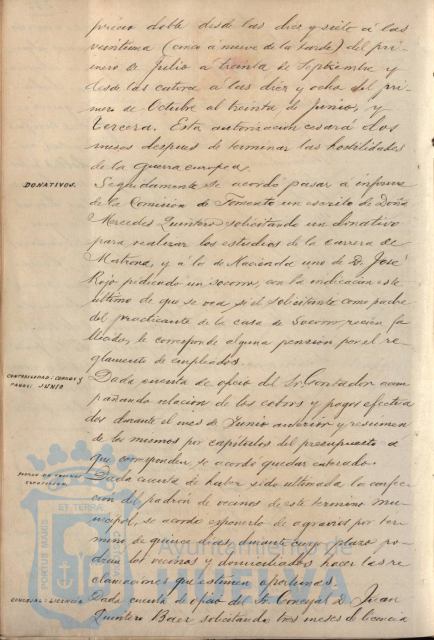 precio doble desde las diez y siete á las
veintiuna (cinco á nueve de la tarde) del pri-
mero de Julio a treinta de Septiembre y
desde las catorce á las diez y ocho del pri-
mero de Octubre al treinta de Junio, y
tercera. Esta autorizacion cesará dos
meses despues de terminar las hostilidades
de la guerra europea.
DONATIVOS.
Seguidamente se acordó pasar a informe
de la Comision de Fomento un escrito de Doña
Mercedes Quintero solicitando un donativo
para realizar los estudios de la carrera de
Matrona, y á la de Hacienda uno de D. José
Rojo pidiendo un socorro, con la indicacion este
ultimo de que se vea si el solicitante como padre
del practicante de la casa de Socorro, recien fa-
llecido, le corresponde alguna pension por el re-
glamento de empleados.
CONTABILIDAD: COBROS Y
PAGOS: JUNIO
Dada cuenta de oficio del Sr. Contador acom-
pañando relacion de los cobros y pagos efectua-
dos durante el mes de Junio anterior y resumen
de los mismos por capitulos del presupuesto a
que corresponden, se acordó quedar enterado.
PADRON DE VECINOS
Dada cuenta de haber sido ultimada la confec-
cion del padrón de vecinos de este termino mu-
nicipal, se acordo exponerlo de agravios por ter-
mino de quince dias durante cuyo plazo po-
drán los vecinos y domiciliados hacer las re-
clamaciones que estimen oportunas.
CONCEJAL: LICENCIA
Dada cuenta de oficio del Sr. Concejal D. Juan
Quintero Baez solicitando tres meses de licencia
PORTUS MARIS
ET TERRAE
Ayuntamiento de
HUELVA